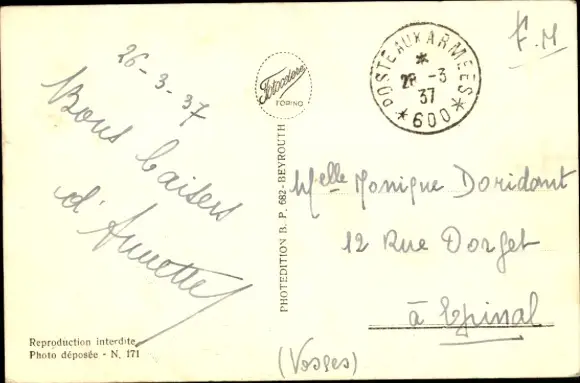 26-3-37
Bons baisers
d'Annette
Reproduction interdite
Photo déposée - N. 171
Fotocelere
TORINO
PHOTEDITION B. P. 682-BEYROUTH
POSTE AUX ARMEES
* 28 -3
37
* 600 *
F.M
Melle Monique Doridant
12 Rue Dorget
à Epinal
(Vosges)